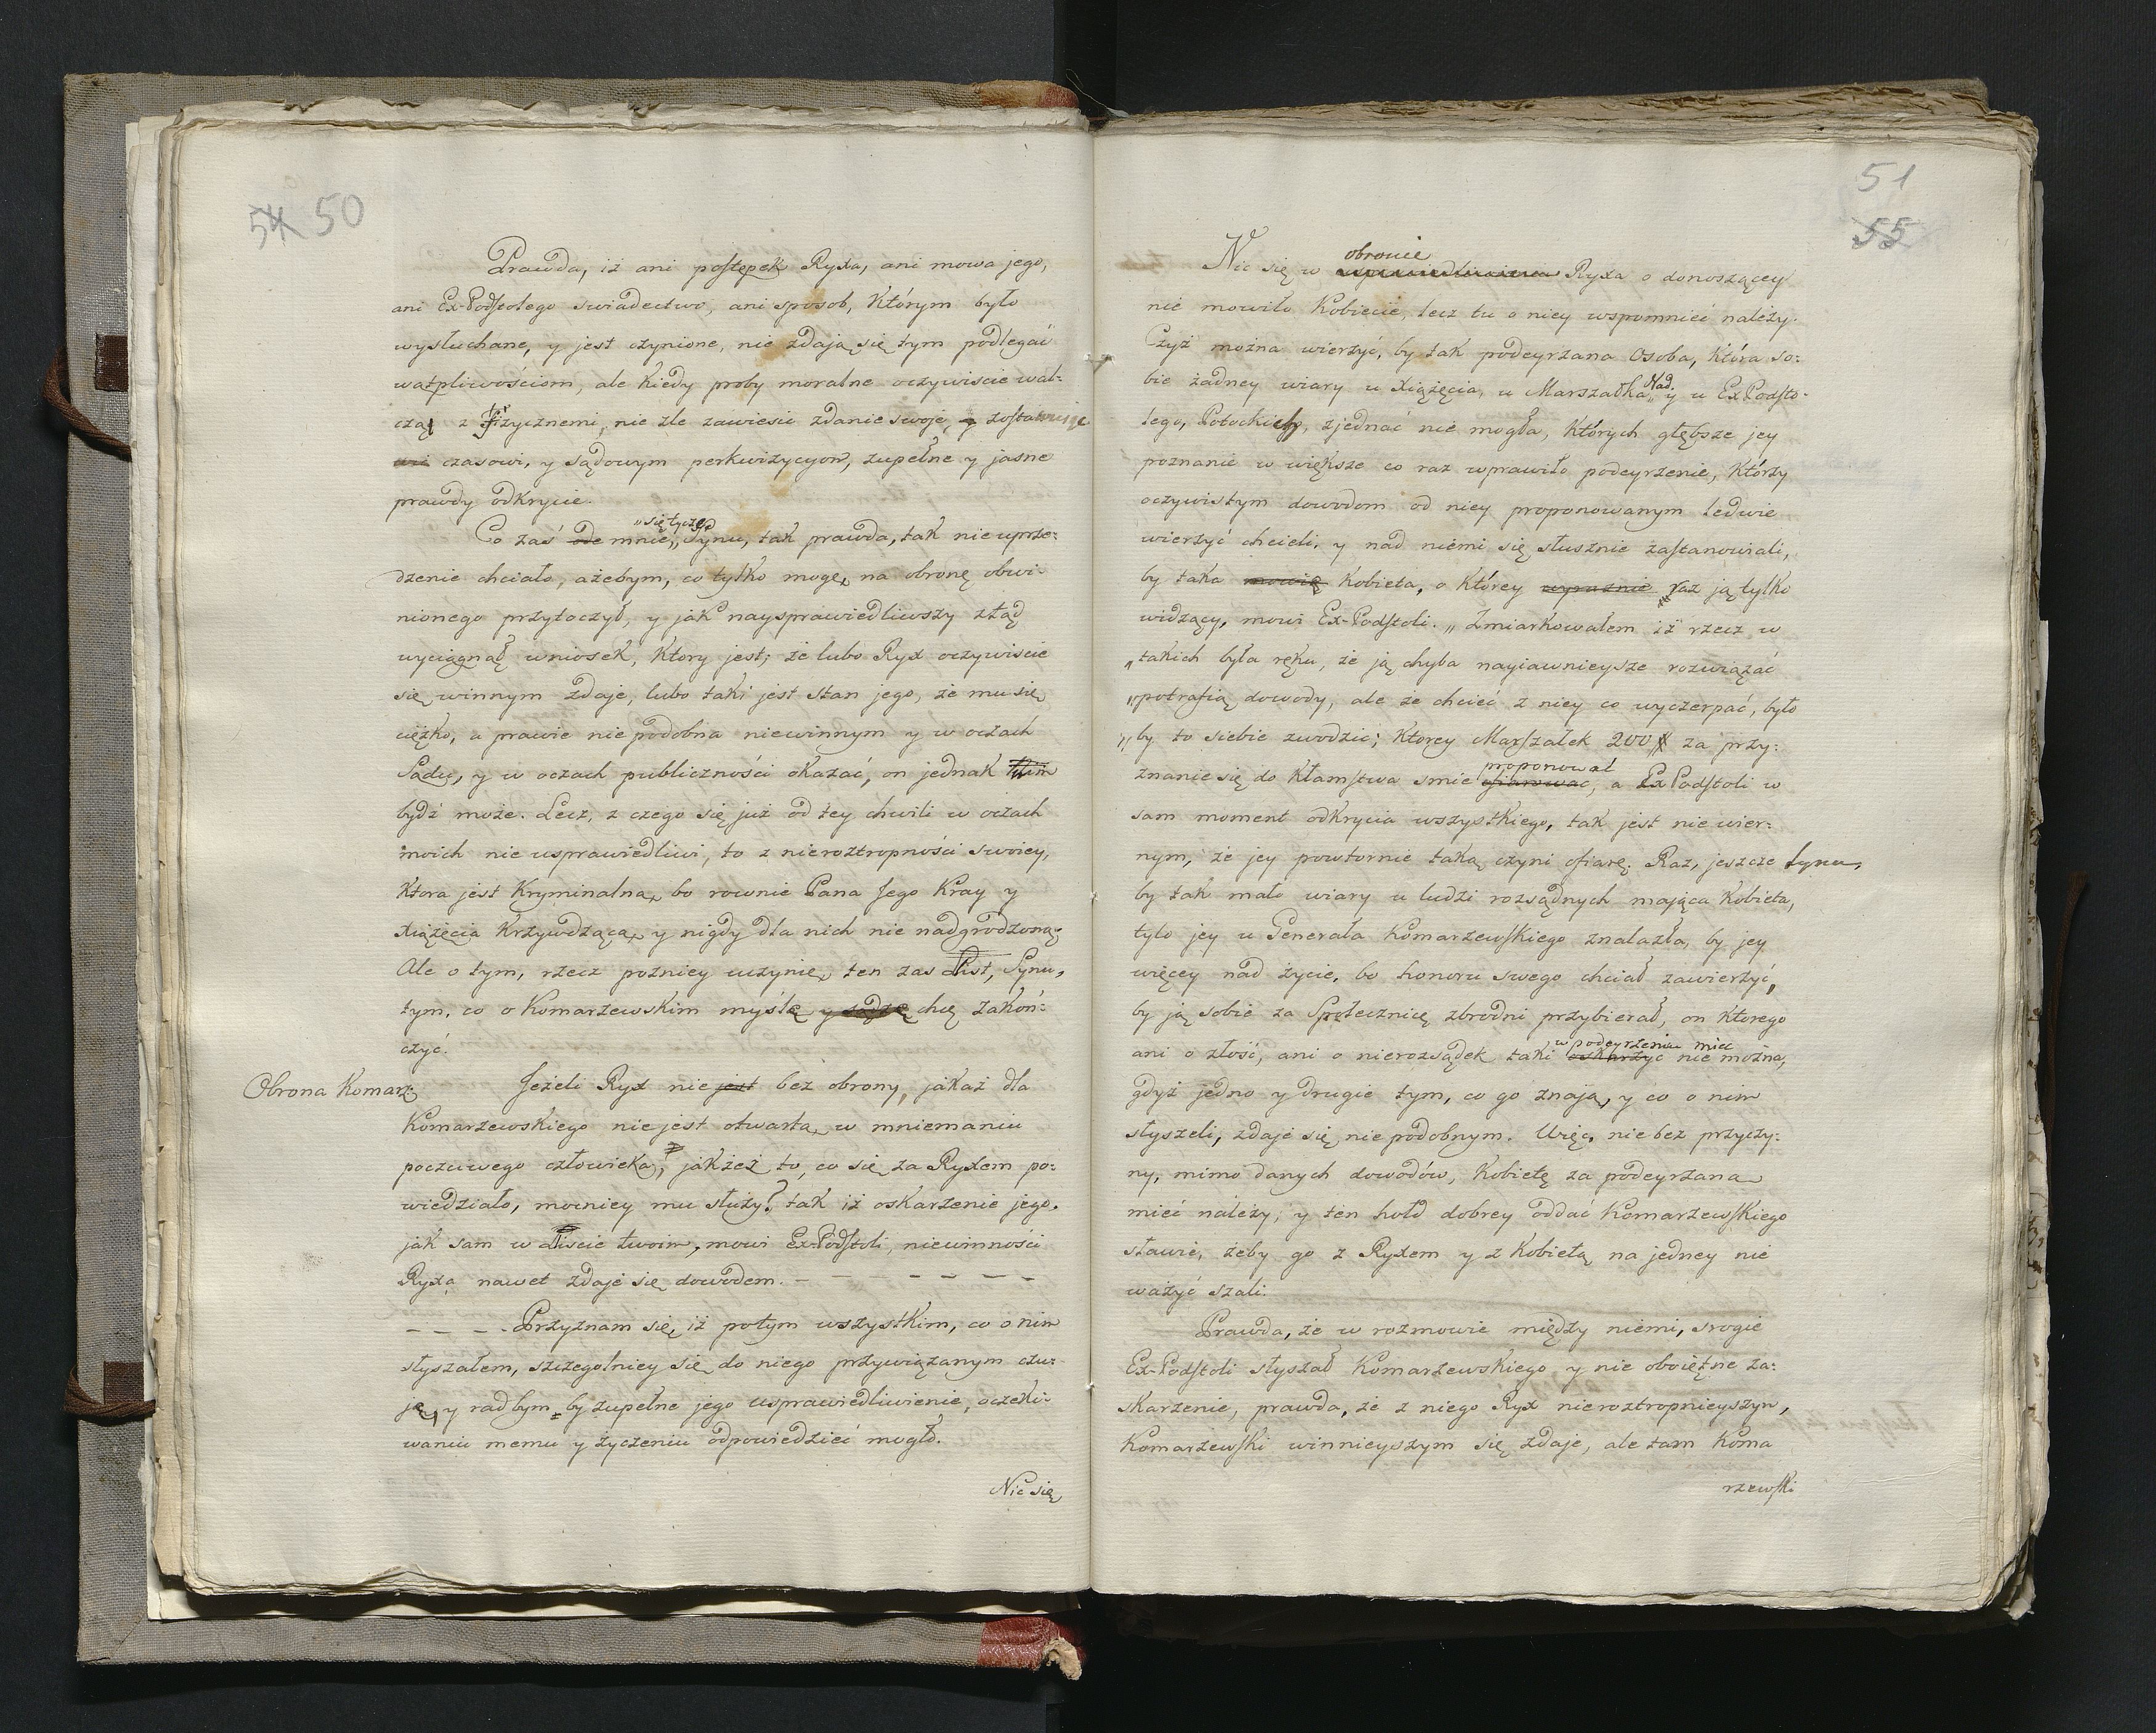 54 50
Prawda, iż ani postępek Ryxa, ani mowa jego,
ani Ex-Podstolego swiadectwo, ani sposob, którym było
wysłuchane, y jest czynione, nie zdają się tym podlegać
wątpliwościom, ale kiedy proby moralne oczywiscie wal-
czą z Fizycznemi, nie zle zawiesic zdanie swoje, y zostawuję
czasowi, y sądowym perkwizycyom, zupełne y jasne
prawdy odkrycie.
się tycze
Co zaś de mnie, Synu, tak prawda, tak nie uprze-
dzenie chciało, ażebym, co tylko mogę, na obronę obwi-
nionego przytoczył, y jak naysprawiedliwszy ztąd
wyciągnął wniosek, ktory jest; że lubo Ryx oczywiscie
się winnym zdaje, lubo taki jest stan jego, że mu się
ciężko, a prawie niepodobna niewinnym y w oczach
Sądu, y w oczach publiczności okazać, on jednak
bydź może. Lecz, z czego się już od tey chwili w oczach
moich nie usprawiedliwi, to z nieroztropności swoiey,
ktora jest kryminalna, bo rownie Pana Jego Kray y
Xiążęcia krzywdząca, y nigdy dla nich nie nadgrodzona;
Ale o tym, rzecz pozniey uczynię, ten zas List, Synu,
tym, co o Komarzewskim myślę y sądzę chcę zakoń-
czyć.
Obrona Komarz:
Jeżeli Ryx nie jest bez obrony, jakaż dla
Komarzewskiego nie jest otwarta, w mniemaniu
poczciwego człowieka, jakżeż to, co się za Ryxem po-
wiedziało, mocniey mu służy? tak iż oskarzenie jego,
jak sam w Liscie twoim, mowi Ex-Podstoli, niewinności
Ryxa nawet zdaje się dowodem. - - - - - - -
- - - - Przyznam się, iż potym wszystkim, co o nim
słyszałem, szczegolniey się do niego przywiązanym czu-
ję, y rad bym, by zupełne jego usprawiedliwienie, oczeki-
waniu memu y życzeniu odpowiedzieć mogło.
Nic się
51
55
obronie
Nic się w usprawiedliwieniu Ryxa o donoszącey
nie mowiło Kobiecie, lecz tu o niey wspomnieć należy.
Czyż można wierzyć, by tak podeyrzana Osoba, która so-
bie żadney wiary u Xiążęcia, u Marszałka Nad. y u Ex Podsto-
lego, Potockich, zjednać nie mogła, których głębsze jey
poznanie w większe co raz wprawiło podeyrzenie, którzy
oczywistym dowodom od niey proponowanym ledwie
wierzyć chcieli, y nad niemi się słusznie zastanowiali,
by taka mowię Kobieta, o którey wyraznie raz ją tylko
widzący, mowi Ex-Podstoli. „Zmiarkowałem iż rzecz w
„takich była ręku, że ją chyba nayiawnieysze rozwiązać
„potrafią dowody, ale że chcieć z niey co wyczerpać, było
„by to siebie zwodzic; ktorey Marszałek 200 # za przy-
proponować
znanie się do kłamstwa smie ofiarować, a Ex Podstoli w
sam moment odkrycia wszystkiego, tak jest nie wier-
nym, że jey powtornie taką czyni ofiarę. Raz, jeszcze Synu,
by tak mało wiary u ludzi rozsądnych mająca Kobieta,
tyle jey u Generała Komarzewskiego znalazła, by jey
więcey nad życie, bo honoru swego chciał zawierzyć,
by ją sobie za Społecznicę zbrodni przybierał, on ktorego
w podeyrzeniu miec
ani o złość, ani o nierozsądek taki oskarżyc nie można,
gdyż jedno y drugie tym, co go znają, y co o nim
słyszeli, zdaje się nie podobnym. Więc, nie bez przyczy-
ny, mimo danych dowodów, Kobietę za podeyrzaną
mieć należy, y ten hołd dobrey oddać Komarzewskiego
sławie, żeby go z Ryxem y z Kobietą na jedney nie
ważyć szali.
Prawda, że w rozmowie między niemi, srogie
Ex-Podstoli słyszał Komarzewskiego y nie oboiętne za-
skarzenie, prawda, że z niego Ryx nieroztropnieyszym,
Komarzewski winnieyszym się zdaje, ale tam Koma
rzewski